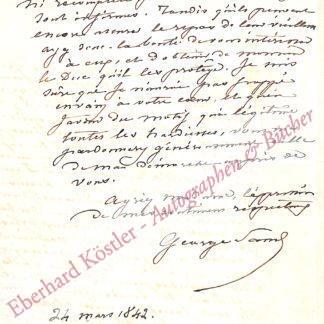 tout infirmes. Tandis qu'ils peuvent
encore assurer le repos de leur vieillesse
ayez donc la bonté de vous intéresser
à eux, et d'obtenir de monsieur
le Duc qu'il les protège. Je suis
sûre que je n'aurai pas frappé
envain à votre cœur, et qu'en
faveur du motif qui légitime
toutes les hardiesses, vous me
pardonnerez généreusement celle
de ma démarche auprès de
vous.
Agréez madame, l'expression
de mes sentimens respectueux
George Sand
24 mars 1842.
Eberhard Köstler - Autographen & Bücher